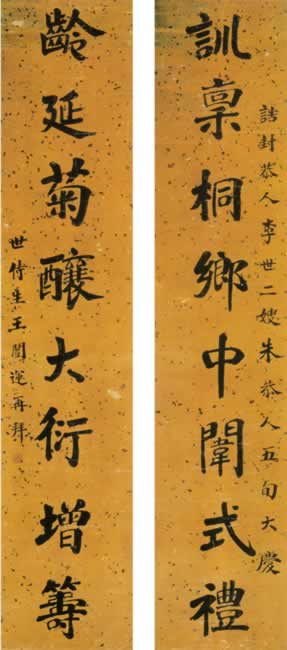 誥封恭人李世二嫂朱恭人五旬大慶
訓稟桐鄉中闈式禮
齡延菊釀大衍增籌
世侍生王闓運再拜